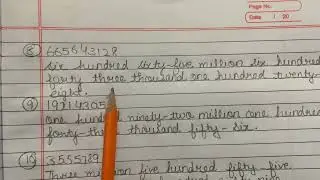 Page No.
Date / 20
⑧ 665643128
Six hundred sixty-five million six hundred
forty three thousand one hundred twenty-
eight.
⑨
one hundred ninety-two million one hundred
forty-three thousand fifty-six.
⑩ 3555789
Three million five hundred fifty five